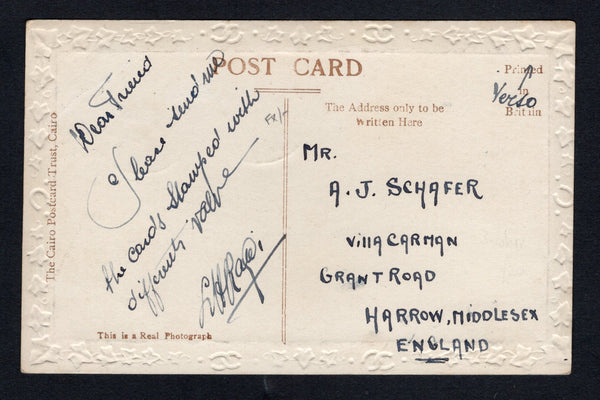 POST CARD
Printed
in
Britain
Verso
The Cairo Postcard Trust, Cairo
Dear Friend
Please send me
the cards stamped with
different value
The Address only to be
Written Here
MR.
A. J. SCHAFER
VILLA CARMAN
GRANT ROAD
HARROW, MIDDLESEX
ENGLAND
This is a Real Photograph